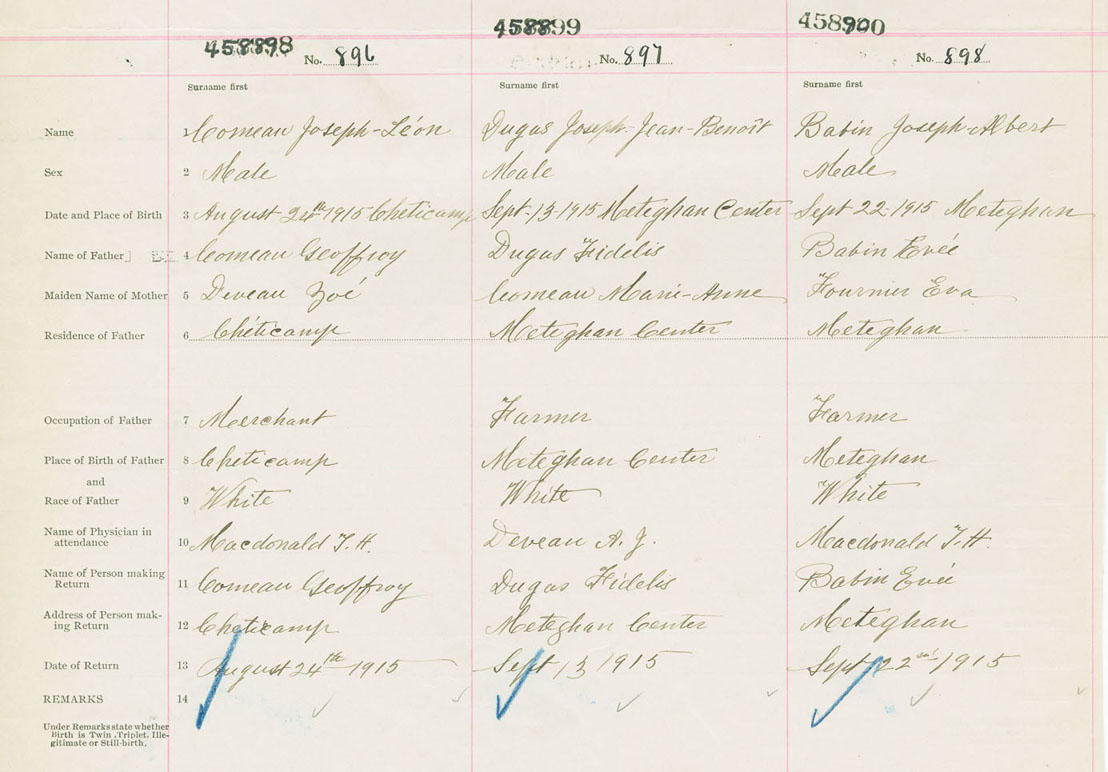 458898 458899 458900
No. 896 No. 897 No. 898
Surname first Surname first Surname first
Name 1 Comeau Joseph-Léon Dugas Joseph-Jean-Benoît Babin Joseph-Albert
Sex 2 Male Male Male
Date and Place of Birth 3 August 24th 1915 Cheticamp Sept-13-1915 Meteghan Center Sept 22-1915 Meteghan
Name of Father 4 Comeau Geoffroy Dugas Fidelis Babin Evée
Maiden Name of Mother 5 Deveau Zoé Comeau Marie-Anne Fournier Eva
Residence of Father 6 Chéticamp Meteghan Center Meteghan
Occupation of Father 7 Merchant Farmer Farmer
Place of Birth of Father 8 Cheticamp Meteghan Center Meteghan
and
Race of Father 9 White White White
Name of Physician in
attendance 10 Macdonald T. H. Deveau A. J. Macdonald T. H.
Name of Person making
Return 11 Comeau Geoffroy Dugas Fidelis Babin Evée
Address of Person mak-
ing Return 12 Cheticamp Meteghan Center Meteghan
Date of Return 13 August 24th 1915 Sept 13 1915 Sept 22nd 1915
REMARKS 14
Under Remarks state whether
Birth is Twin, Triplet, Ille-
gitimate or Still-birth.